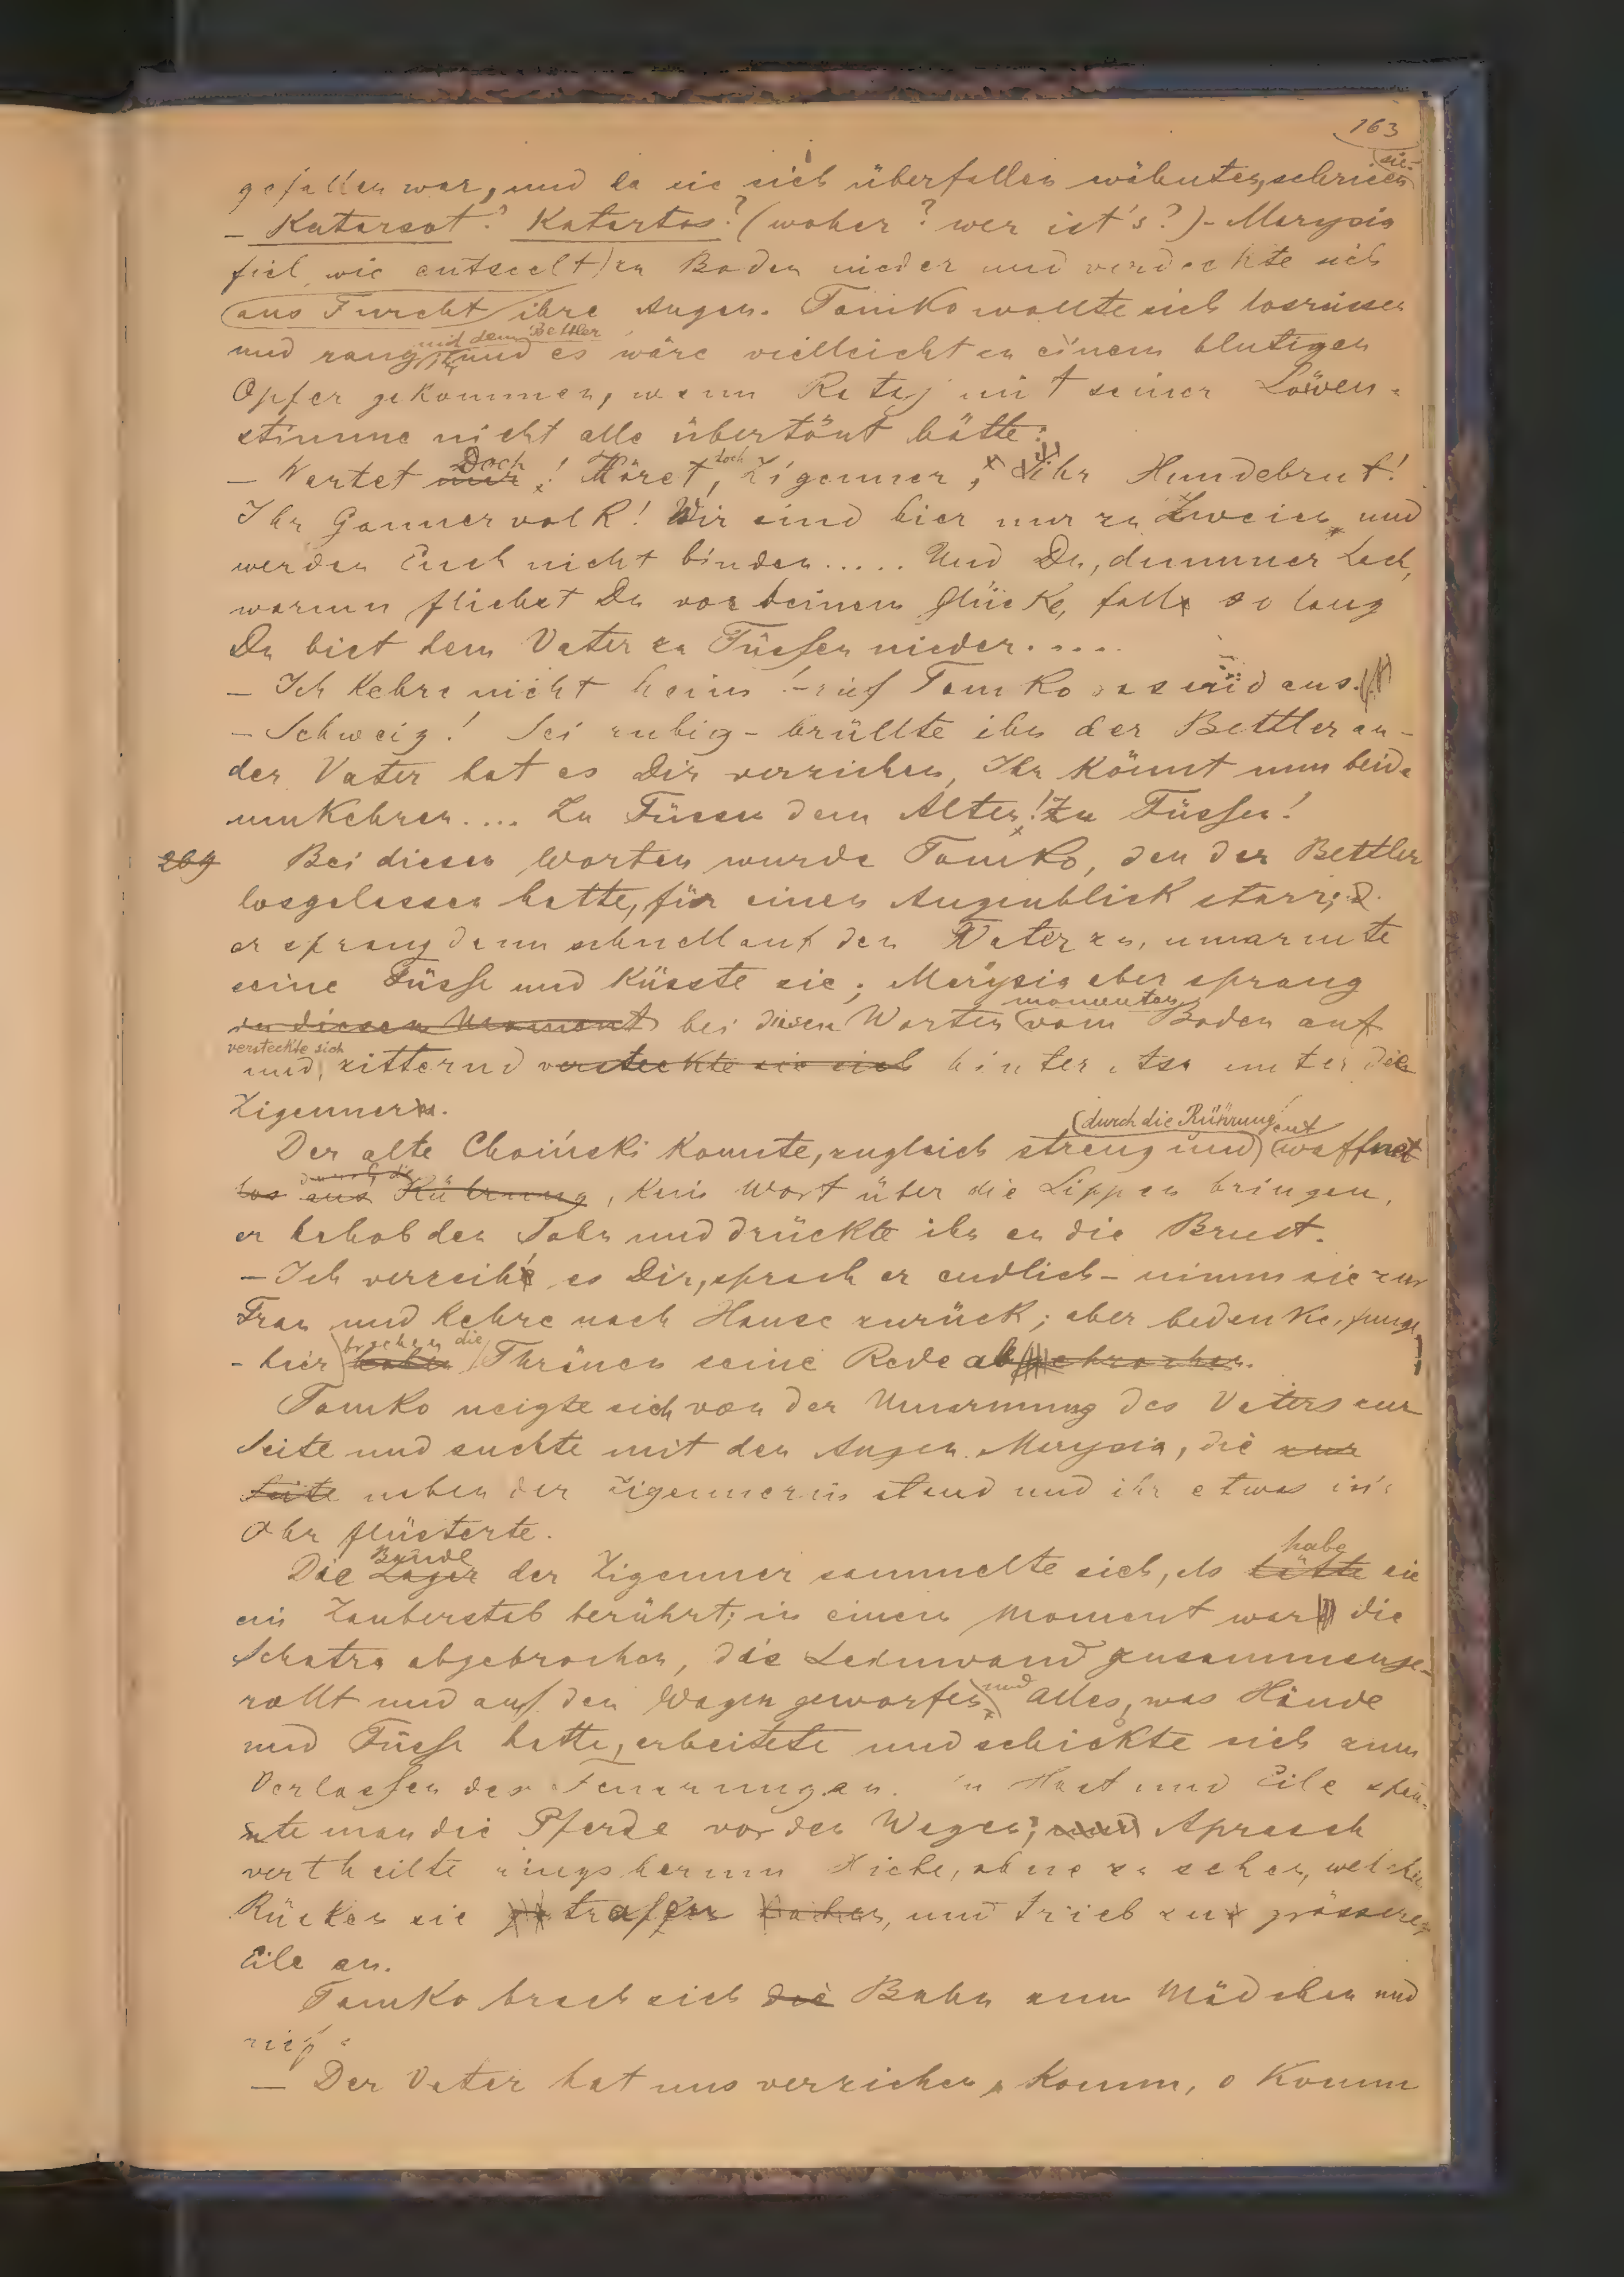 163
gefallen war, und da sie sich überfallen wähnten, schrieen sie
– Katarsot? Katartos? (woher? wer ist's?) – Marysia
fiel wie entseelt zu Boden nieder und verdeckte sich
aus Furcht ihre Augen. Tomko wollte sich losreissen
und rang mit dem Bettler und es wäre vielleicht zu einem blutigen
Opfer gekommen, wenn Rataj mit seiner Löwen-
stimme nicht alle übertönt hätte:
– Wartet nur Doch! Höret doch, Zigeuner, Ihr Hundebrut!
Ihr Gaunervolk! Wir sind hier nur zu Zweien und
werden Euch nicht binden..... Und Du, dummer Lach,
warum fliehst Du vor deinem Glücke, falle so lang
Du bist dem Vater zu Füssen nieder.....
– Ich kehre nicht heim! – rief Tomko aus.
– Schweig! Sei ruhig – brüllte ihn der Bettler an –
der Vater hat es Dir verziehen, Ihr könnt nun beide
umkehren.... Zu Füssen dem Alten! Zu Füssen!
269 Bei diesen Worten wurde Tomko, den der Bettler
losgelassen hatte, für einen Augenblick starr;
er sprang dann schnell auf den Vater zu, umarmte
seine Füsse und küsste sie; Marysia aber sprang
in diesem Moment bei diesen Worten momentan vom Boden auf
und versteckte sich zitternd versteckte sie sich hinter unter die
Zigeuner.
Der alte Choiński konnte, zugleich streng und (durch die Rührung entwaffnet
los aus durch die Rührung, kein Wort über die Lippen bringen,
er behob den Sohn und drückte ihn an die Brust.
– Ich verzeihe es Dir, sprach er endlich – nimm sie zur
Frau und kehre nach Hause zurück; aber bedenke, junge,
– hier brachen die haben Thränen seine Rede abgebrochen.
Tomko neigte sich von der Umarmung des Vaters zur
Seite und suchte mit den Augen Marysia, die zur
Seite neben der Zigeunerin stand und ihr etwas in's
Ohr flüsterte.
Die Lager Bande der Zigeuner sammelte sich, als hätte habe sie
ein Zauberstab berührt; in einem Moment war die
Schatra abgebrochen, die Leinwand zusammenge-
rollt und auf den Wagen geworfen und Alles, was Hände
und Füsse hatte, arbeitete und schickte sich zum
Verlassen der Feuerungen. In Hast und Eile span-
nte man die Pferde vor den Wagen; und Aprasch
vertheilte ringsherum Hiebe, ohne zu sehen, welchen
Rücken sie trafen, und trieb zur grösseren
Eile an.
Tomko brach sich die Bahn zum Mädchen und
rief:
– Der Vater hat uns verziehen, komm, o komm